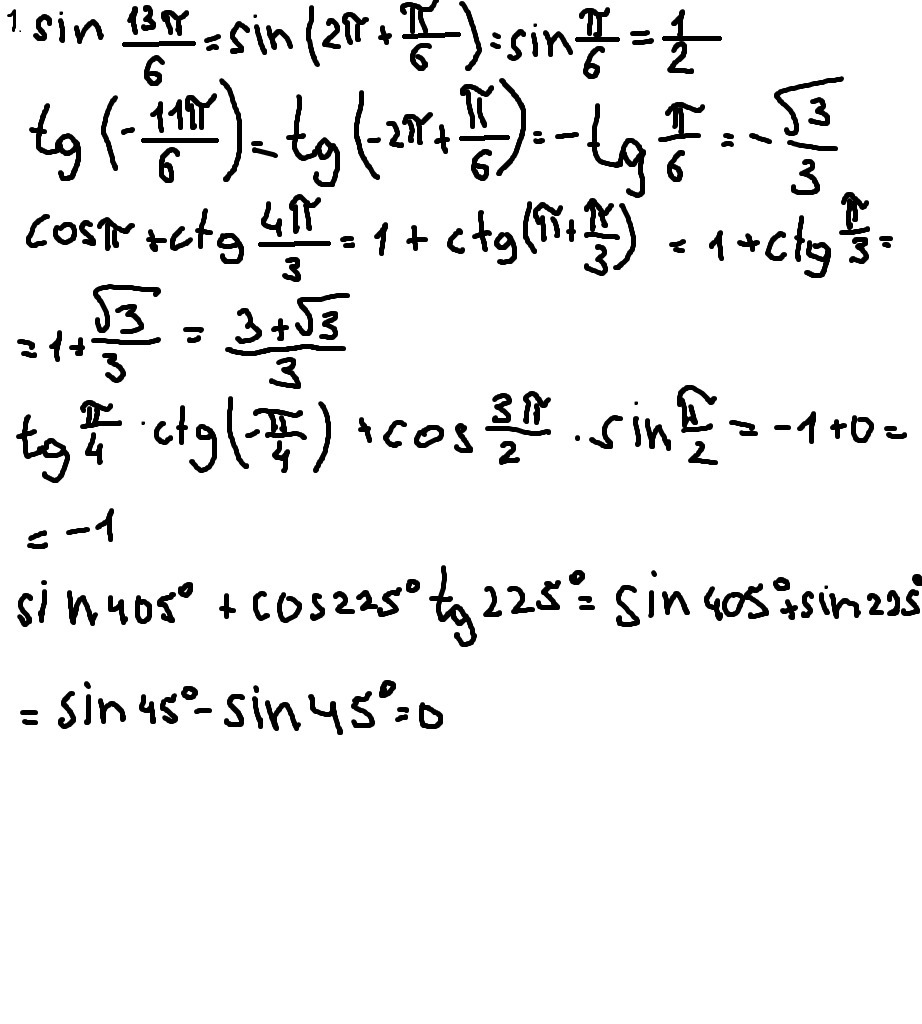 1. sin 13π/6 = sin (2π + π/6) = sin π/6 = 1/2
tg (-11π/6) = tg (-2π + π/6) = -tg π/6 = -√3/3
cosπ + ctg 4π/3 = 1 + ctg(π + π/3) = 1 + ctg π/3 =
= 1 + √3/3 = (3+√3)/3
tg π/4 · ctg(-π/4) + cos 3π/2 · sin π/2 = -1 + 0 =
= -1
sin 405° + cos 225° tg 225° = sin 405° + sin 225°
= sin 45° - sin 45° = 0